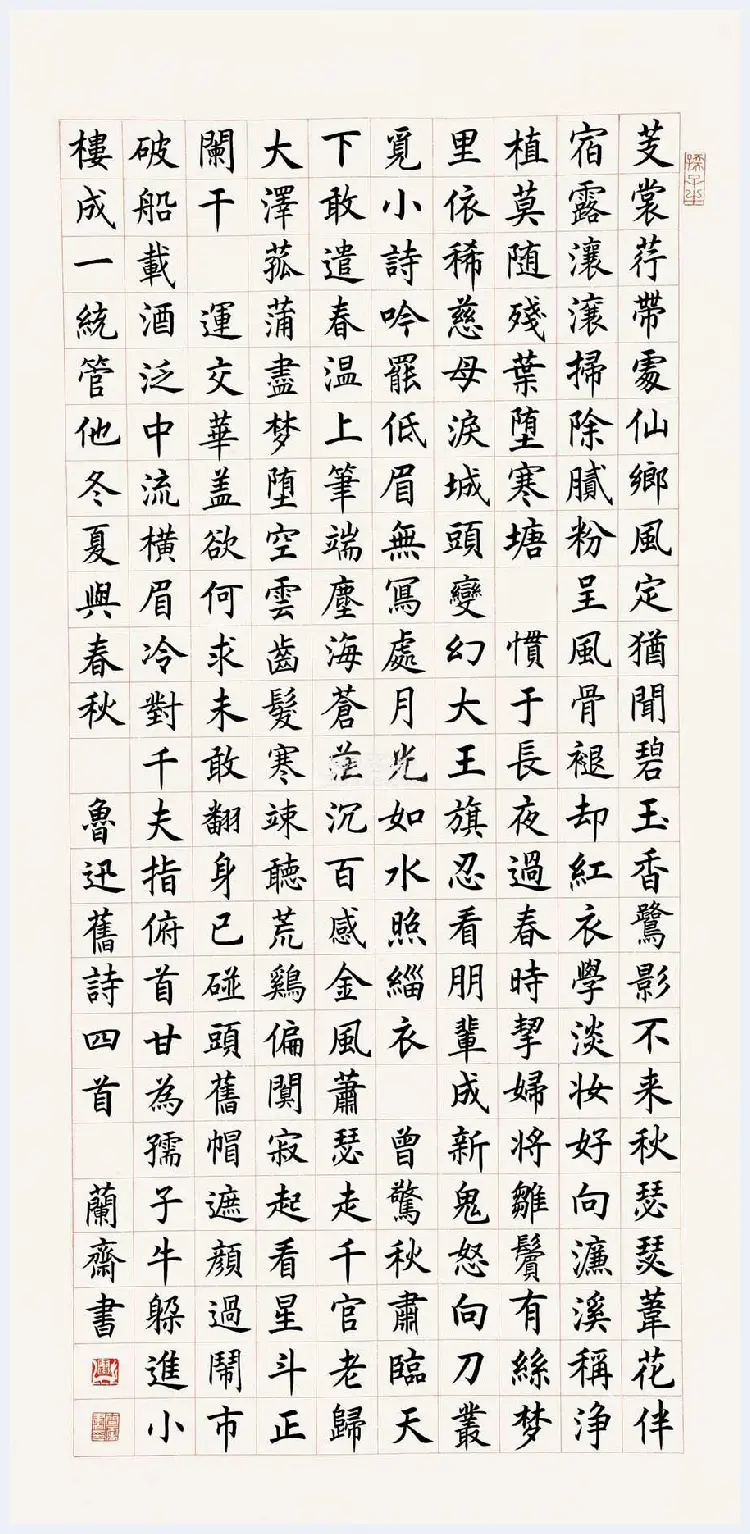 芰裳荇帶處仙鄉風定猶聞碧玉香鷺影不来秋瑟瑟葦花伴
宿露瀼瀼掃除膩粉呈風骨褪却紅衣學淡妆好向濂溪稱淨
植莫随殘葉堕寒塘 慣于長夜過春時挈婦将雛鬢有絲梦
里依稀慈母淚城頭變幻大王旗忍看朋輩成新鬼怒向刀叢
覓小詩吟罷低眉無寫處月光如水照緇衣 曾驚秋肅臨天
下敢遣春温上筆端塵海蒼茫沉百感金風蕭瑟走千官老歸
大澤菰蒲盡梦堕空雲齒髮寒竦聽荒鷄偏闃寂起看星斗正
闌干 運交華盖欲何求未敢翻身已碰頭舊帽遮顔過鬧市
破船載酒泛中流橫眉冷對千夫指俯首甘為孺子牛躲進小
樓成一統管他冬夏與春秋 魯迅舊詩四首 蘭齋書